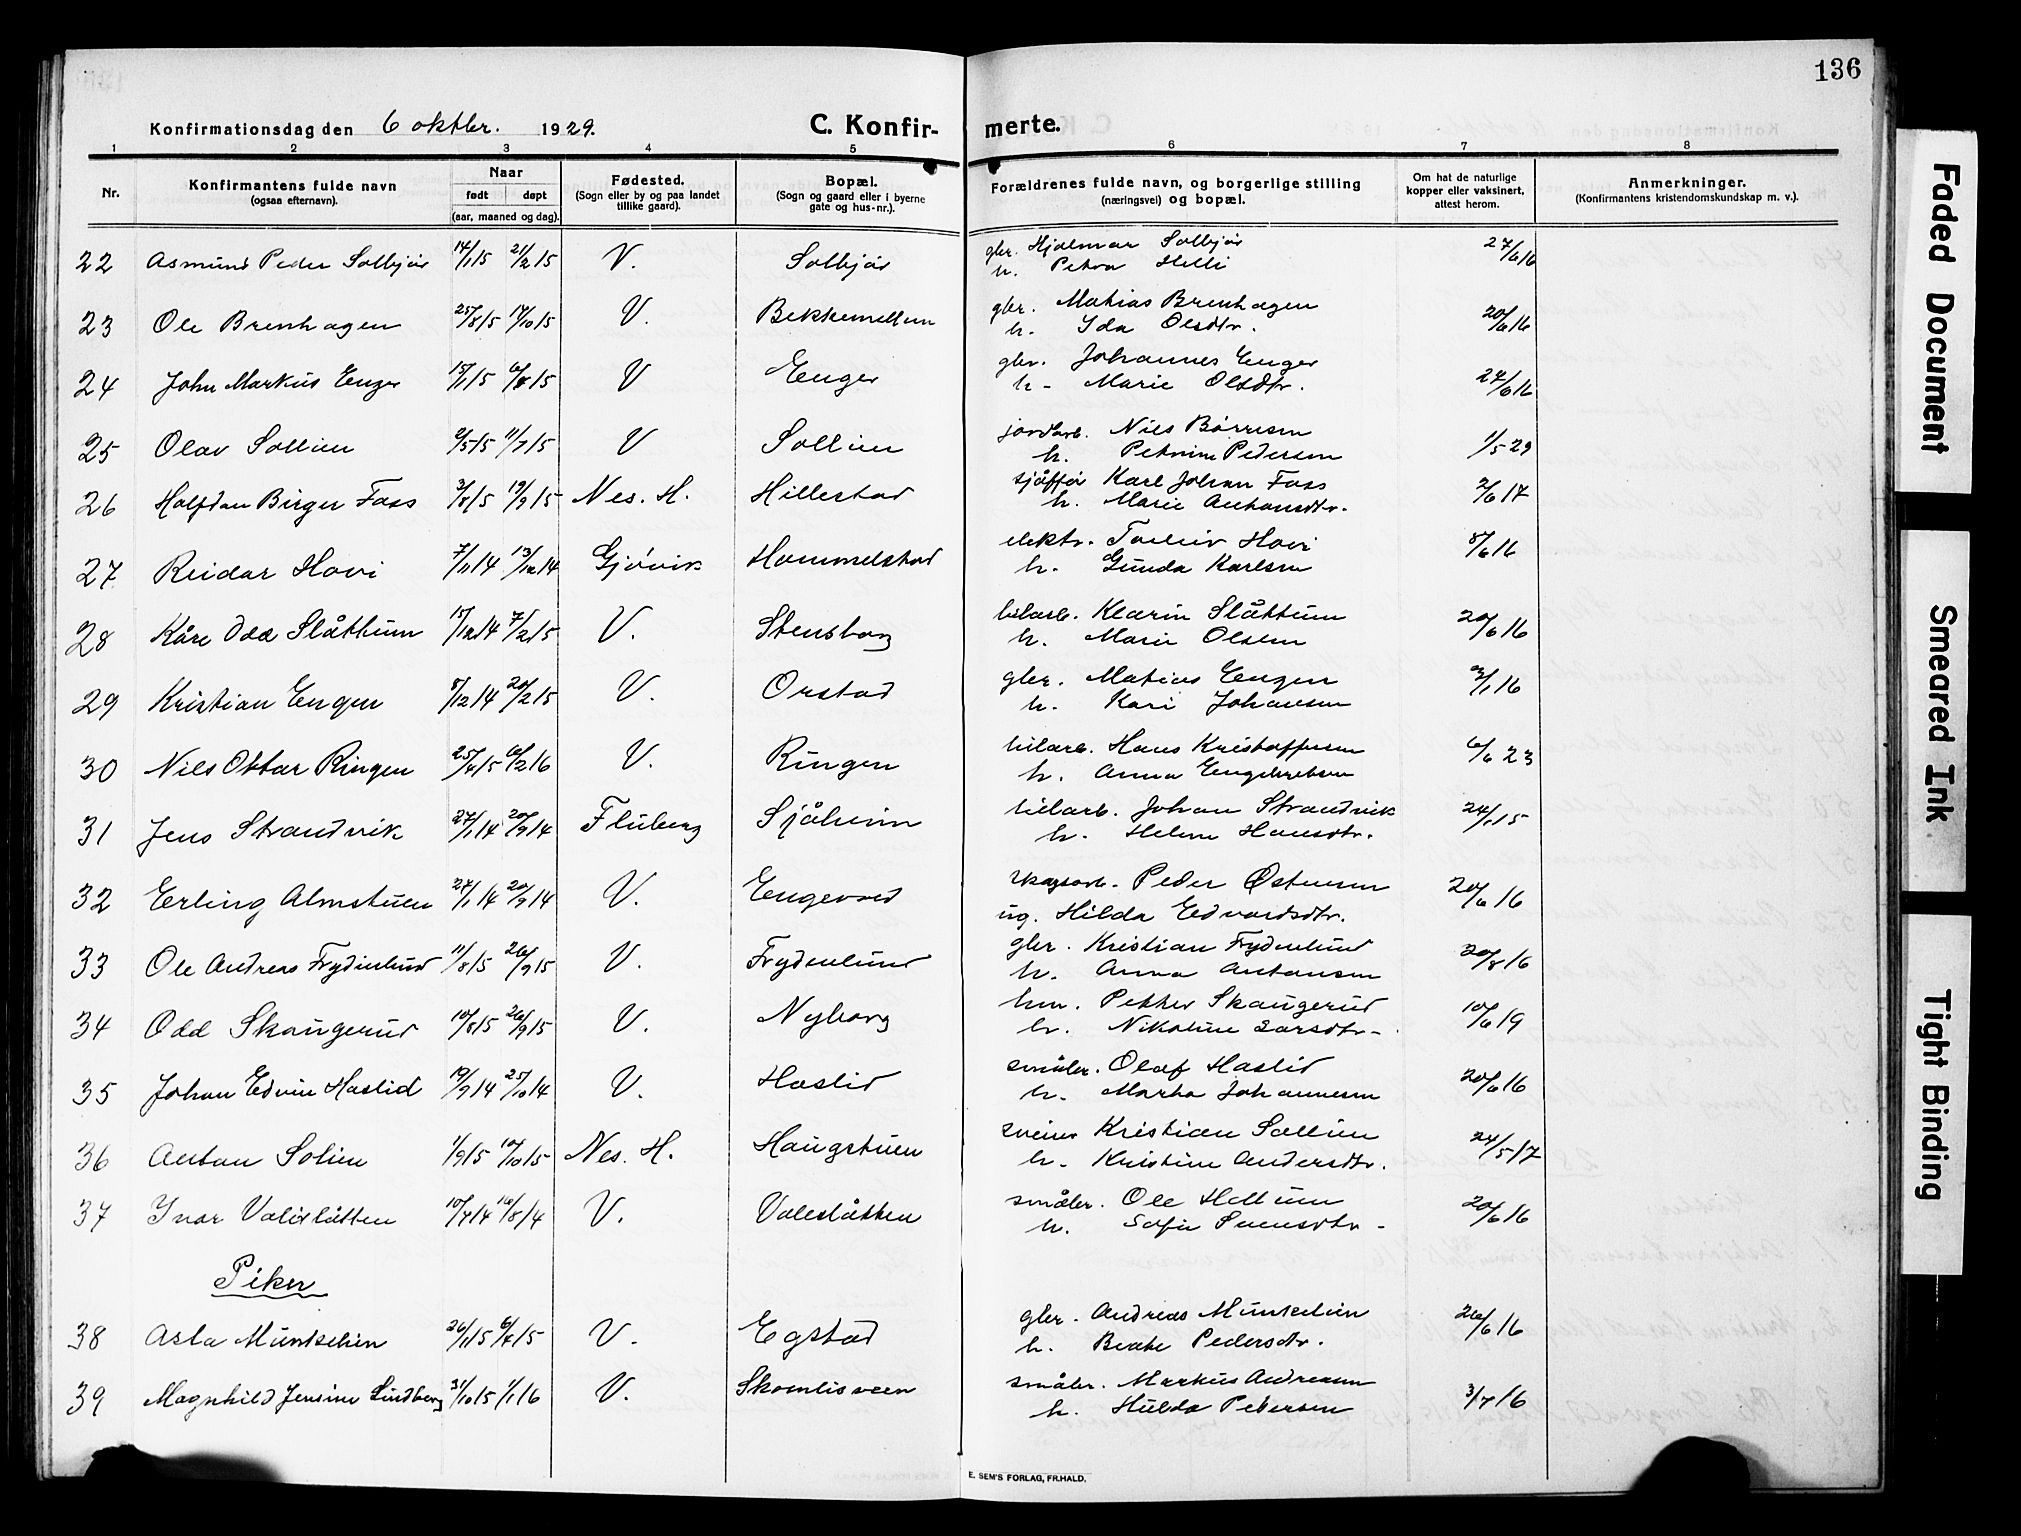 136
Konfirmationsdag den 6 oktbr. 1929.
C. Konfir- merte.
1 2 3 4 5 6 7 8
Nr.
Konfirmantens fulde navn
(ogsaa efternavn).
Naar
født døpt
(aar, maaned og dag).
Fødested.
(Sogn eller by og paa landet
tillike gaard).
Bopæl.
(Sogn og gaard eller i byerne
gate og hus-nr.).
Forældrenes fulde navn, og borgerlige stilling
(næringsvei) og bopæl.
Om hat de naturlige
kopper eller vaksinert,
attest herom.
Anmerkninger.
(Konfirmantens kristendomskundskap m. v.).
22 Asmund Peder Solbjør 14/1 15 21/2 15 V. Solbjør gbr. Hjalmar Solbjør 27/6 16
h. Petra Helli
23 Ole Brenhagen 25/8 15 17/10 15 V. Bekkemellem gbr. Matias Brenhagen 20/6 16
h. Ida Olsdtr.
24 John Markus Enger 15/1 15 V Enger gbr. Johannes Enger 27/6 16
h- Marie Olsdtr.
25 Olav Sollien 2/5 15 11/7 15 V Sollien jordarb. Nils Børresen 1/5 29
h. Petrine Pedersen
26 Halfdan Birger Foss 3/8 15 19/9 15 Nes. H. Hillestad sjåffør Karl Johan Foss 2/6 17
h. Marie Antonsdtr.
27 Reidar Hovi 7/11 14 13/12 14 Gjøvik Hommelstad elektr. Torleiv Hovi 8/6 16
h. Gunda Karlsen
28 Kåre Odd Slåttum 15/12 14 7/2 15 V. Stensborg bilarb. Klarin Slåttum 20/6 16
h. Marie Olsen
29 Kristian Engen 8/12 14 20/2 15 V. Orstad gbr. Matias Engen
h. Kari Johansen
30 Nils Ottar Ringen 25/4 15 6/2 16 V. Ringen bilarb. Hans Kristoffersen 6/6 23
h. Anna Engebretsen
31 Jens Strandvik 27/1 14 20/9 14 Fluberg Sjåheim bilarb. Johan Strandvik 24/1 15
h. Helene Hansdtr.
32 Erling Almstuen 27/1 14 20/9 14 V. Engevold skogsarb. Peder Østensen 20/6 16
ug. Hilda Edvardsdtr.
33 Ole Andreas Frydenlund 11/8 15 26/9 15 V. Frydenlund gbr. Kristian Frydenlund 20/8 16
h. Anna Antonsen
34 Odd Skaugerud 10/8 15 26/9 15 V. Nyborg hm. Petter Skaugerud 10/6 19
h. Nikoline Larsdtr-
35 Johan Edvin Haslid 19/9 14 25/10 14 V. Haslid småbr. Olaf Haslid 20/6 16
h. Marta Johannesen
36 Anton Solien 1/9 15 10/10 15 Nes. H. Haugstuen sveiser Kristian Sollien 24/5 17
h. Kristine Andersdtr.
37 Ivar Valeslåtten 10/7 14 16/8 14 V. Valeslåtten småbr. Ole Hellum 20/6 16
h. Sofie Svensdtr -
Piker
38 Asta Munkelien 26/1 15 V. Egstad gbr. Andreas Munkelien 26/6 16
h. Beate Pedersdtr.
39 Magnhild Jensine Lindberg 31/10 15 1/1 16 V. Skomlisveen småbr. Markus Andresen 3/7 16
h. Hulda Petersen
E. SEM'S FORLAG, FR.HALD.
Faded Document
Smeared Ink
Tight Binding